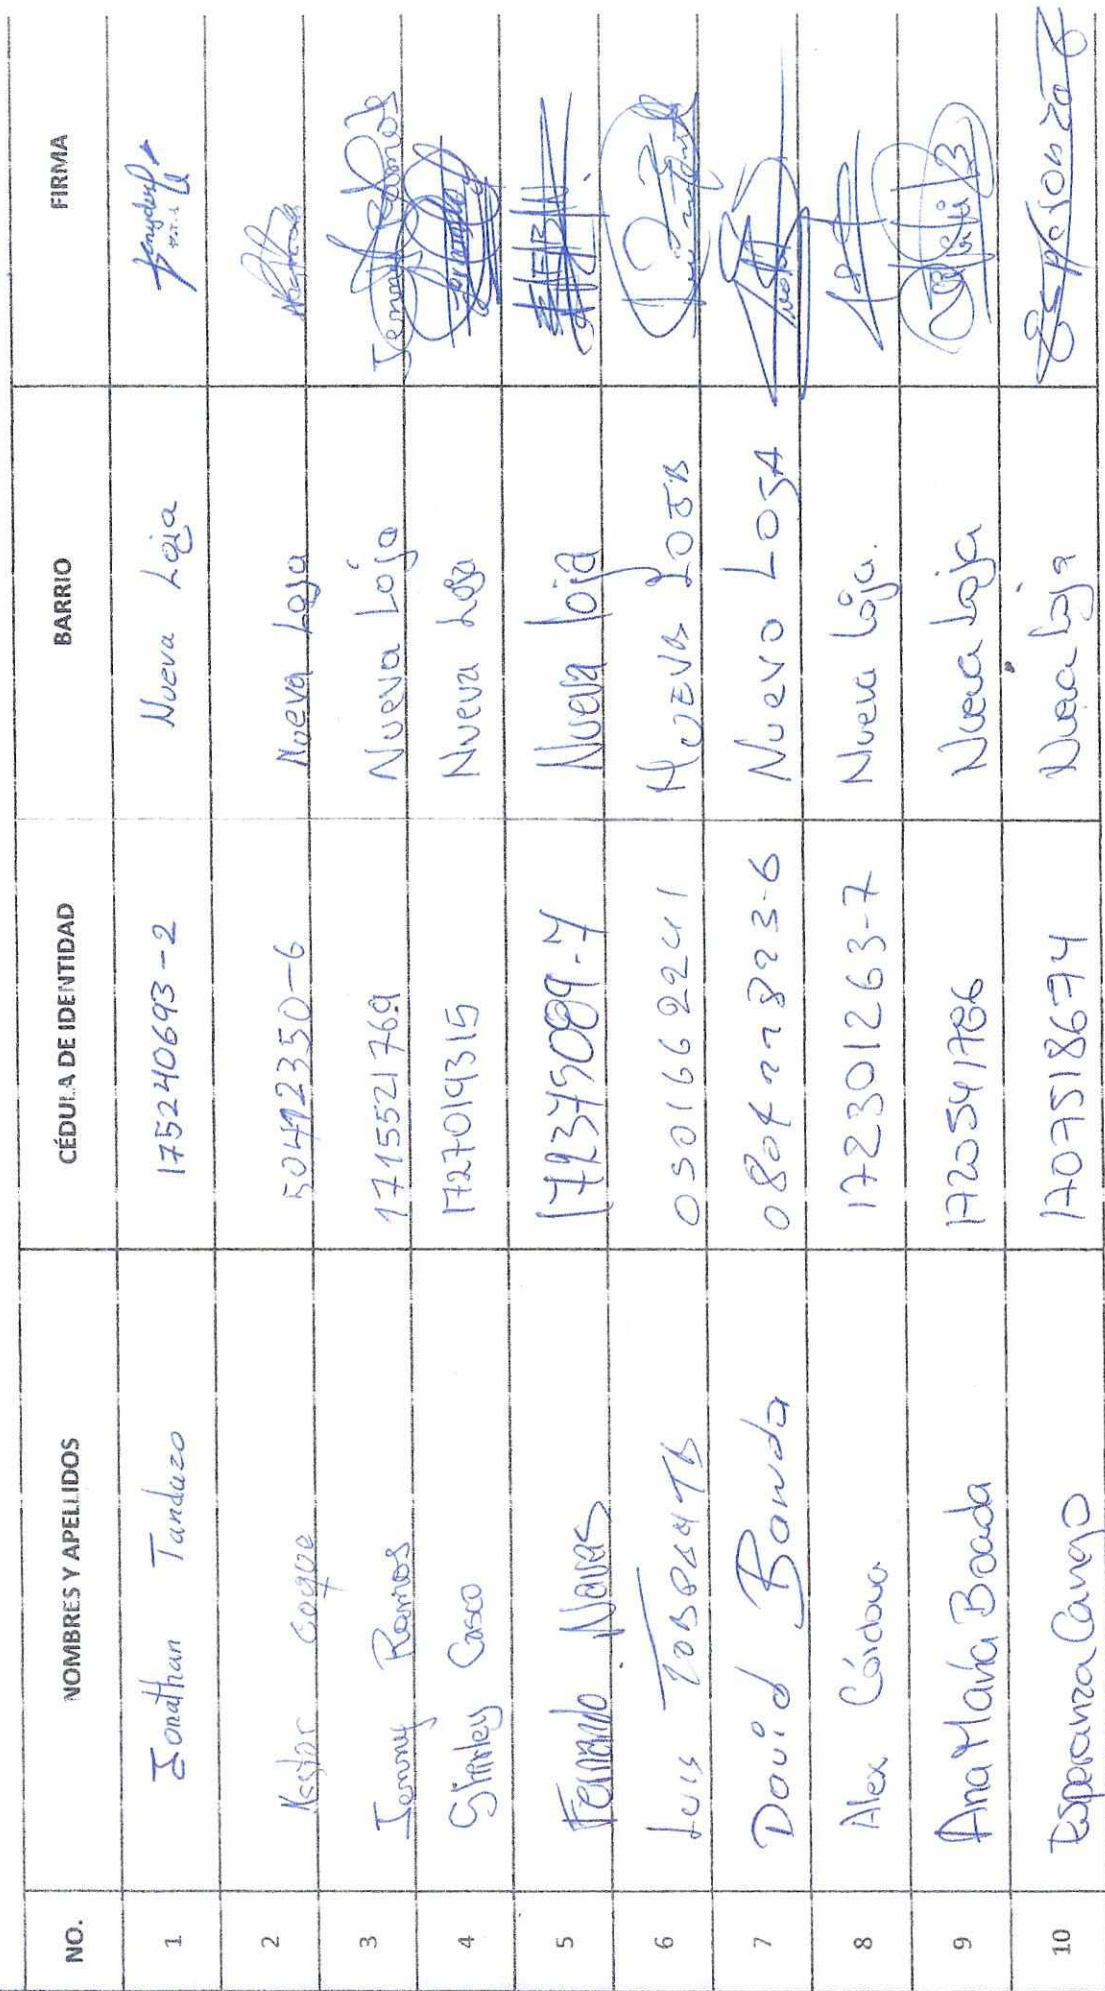 NO. NOMBRES Y APELLIDOS CÉDULA DE IDENTIDAD BARRIO FIRMA
1 Jonathan Tanduzo 175240693-2 Nueva Loja
2 Nestor Coque 50492350-6 Nueva Loja
3 Jenny Ramos 1715521769 Nueva Loja Jenny Ramos
4 Shirley Casco 1727019315 Nueva Loja
5 Fernando Navas 172375089-7 Nueva loja
6 Luis 0501662241 Nueva
7 David Banda 080422823-6 Nuevo LOJA
8 Alex Córdova 172301263-7 Nueva Loja.
9 Ana María Boada 1720541786 Nueva Loja
10 Esperanza Cango 1707518674 Nueva Loja